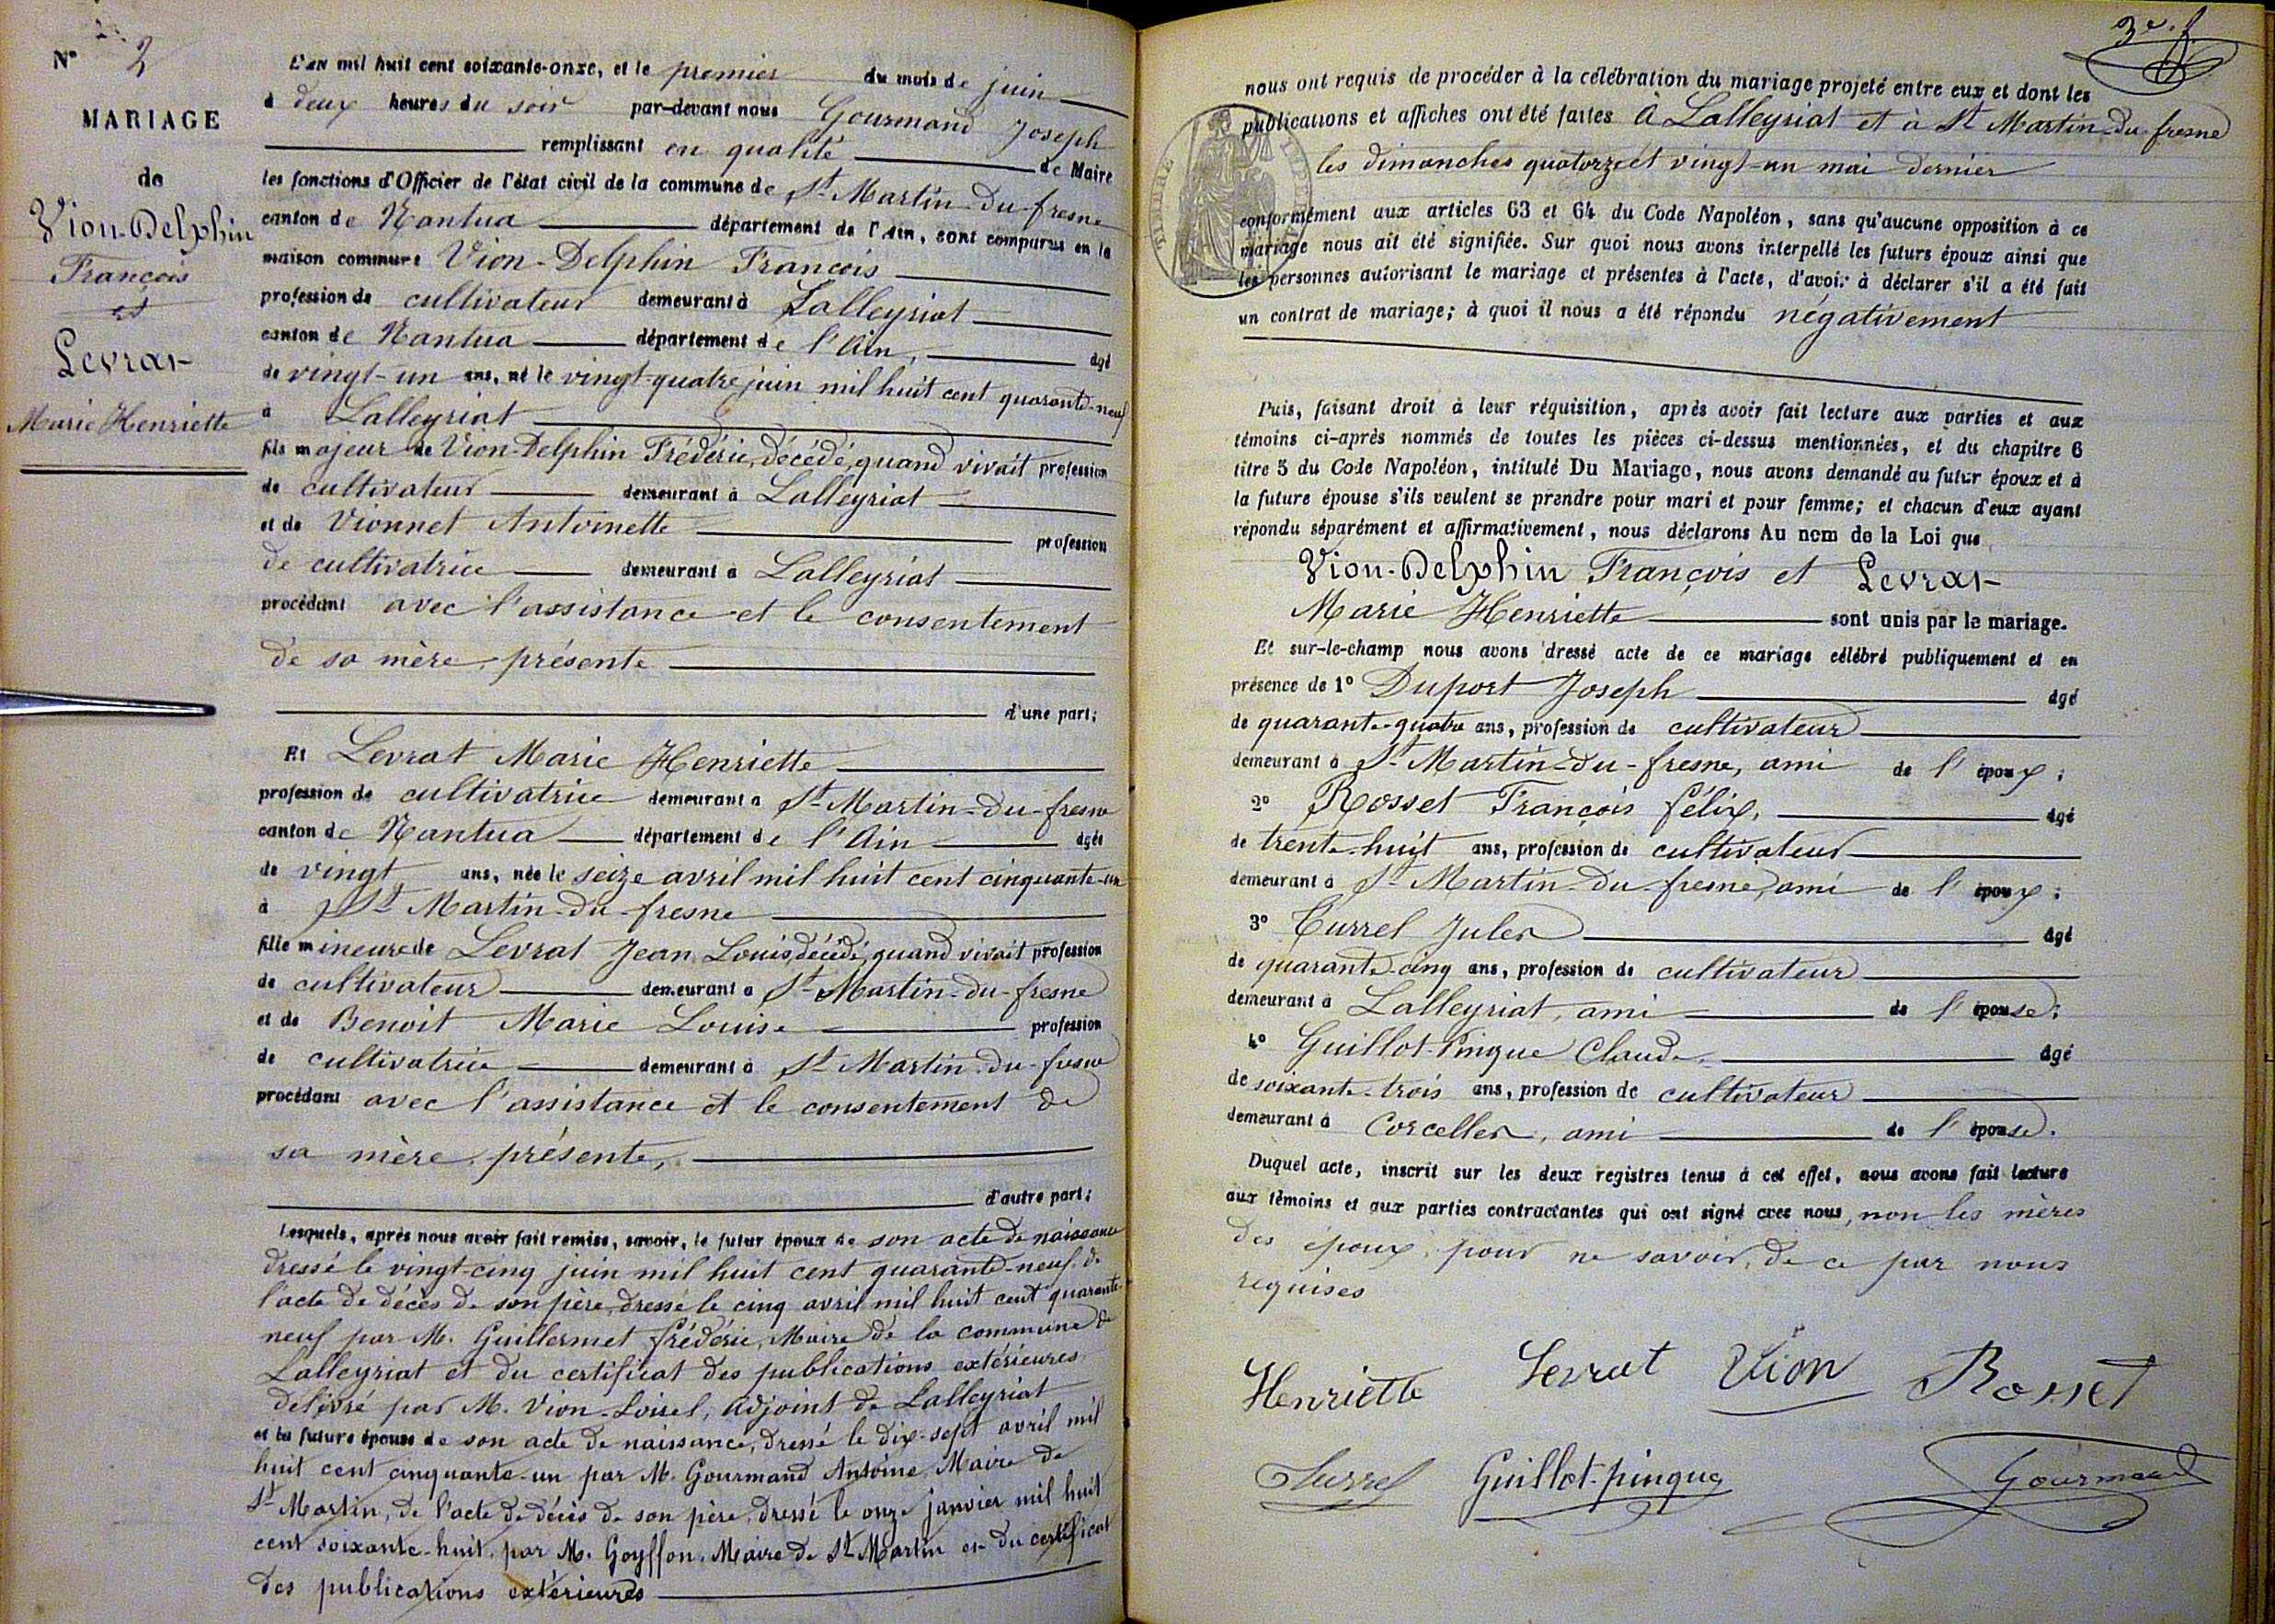 N° 2
MARIAGE
de
Vion-Delphin
François
et
Levrat
Marie Henriette
L'an mil huit cent soixante-onze, et le premier du mois de juin
à deux heures du soir par-devant nous Gourmand Joseph
remplissant en qualité de Maire
les fonctions d'Officier de l'état civil de la commune de St Martin-du-fresne
canton de Nantua département de l'Ain, sont comparus en la
maison commune Vion-Delphin François
profession de cultivateur demeurant à Lalleyriat
canton de Nantua département de l'Ain, âgé
de vingt-un ans, né le vingt-quatre juin mil huit cent quarante-neuf
à Lalleyriat
fils majeur de Vion-Delphin Frédéric, décédé, quand vivait profession
de cultivateur demeurant à Lalleyriat
et de Vionnet Antoinette profession
de cultivatrice demeurant à Lalleyriat
procédant avec l'assistance et le consentement
de sa mère, présente
d'une part;
Et Levrat Marie Henriette
profession de cultivatrice demeurant à St Martin-du-fresne
canton de Nantua département de l'Ain âgée
de vingt ans, née le seize avril mil huit cent cinquante-un
à St Martin-du-fresne
fille mineure de Levrat Jean Louis, décédé, quand vivait profession
de cultivateur demeurant à St Martin-du-fresne
et de Benoit Marie Louise profession
de cultivatrice demeurant à St Martin-du-fresne
procédant avec l'assistance et le consentement de
sa mère, présente,
d'autre part;
Lesquels, après nous avoir fait remise, savoir, le futur époux de son acte de naissance
dressé le vingt-cinq juin mil huit cent quarante-neuf, de
l'acte de décès de son père, dressé le cinq avril mil huit cent quarante-
neuf par M. Guillermet frédéric, Maire de la commune de
Lalleyriat et du certificat des publications extérieures
délivré par M. Vion-Loisel, adjoint de Lalleyriat
et la future épouse de son acte de naissance, dressé le dix-sept avril mil
huit cent cinquante-un par M. Gourmand Antoine, Maire de
St Martin, de l'acte de décès de son père, dressé le onze janvier mil huit
cent soixante-huit, par M. Goyffon, Maire de St Martin et du certificat
des publications extérieures
3e. f.
nous ont requis de procéder à la célébration du mariage projeté entre eux et dont les
publications et affiches ont été faites à Lalleyriat et à St Martin-du-fresne
les dimanches quatorze et vingt-un mai dernier
conformément aux articles 63 et 64 du Code Napoléon, sans qu'aucune opposition à ce
mariage nous ait été signifiée. Sur quoi nous avons interpellé les futurs époux ainsi que
les personnes autorisant le mariage et présentes à l'acte, d'avoir à déclarer s'il a été fait
un contrat de mariage; à quoi il nous a été répondu négativement
Puis, faisant droit à leur réquisition, après avoir fait lecture aux parties et aux
témoins ci-après nommés de toutes les pièces ci-dessus mentionnées, et du chapitre 6
titre 5 du Code Napoléon, intitulé Du Mariage, nous avons demandé au futur époux et à
la future épouse s'ils veulent se prendre pour mari et pour femme; et chacun d'eux ayant
répondu séparément et affirmativement, nous déclarons Au nom de la Loi que
Vion-Delphin François et Levrat
Marie Henriette sont unis par le mariage.
Et sur-le-champ nous avons dressé acte de ce mariage célébré publiquement et en
présence de 1° Duport Joseph âgé
de quarante-quatre ans, profession de cultivateur
demeurant à St Martin-du-fresne, ami de l'époux;
2° Rosset François félix, âgé
de trente-huit ans, profession de cultivateur
demeurant à St Martin-du-fresne, ami de l'époux;
3° Currel Jules âgé
de quarante-cinq ans, profession de cultivateur
demeurant à Lalleyriat, ami de l'épouse;
4° Guillot-Pingue Claude, âgé
de soixante-trois ans, profession de cultivateur
demeurant à Corcelles, ami de l'épouse.
Duquel acte, inscrit sur les deux registres tenus à cet effet, nous avons fait lecture
aux témoins et aux parties contractantes qui ont signé avec nous, non les mères
des époux, pour ne savoir, de ce par nous
requises
Henriette Levrat Vion Rosset
Guillot-pingue Gourmand